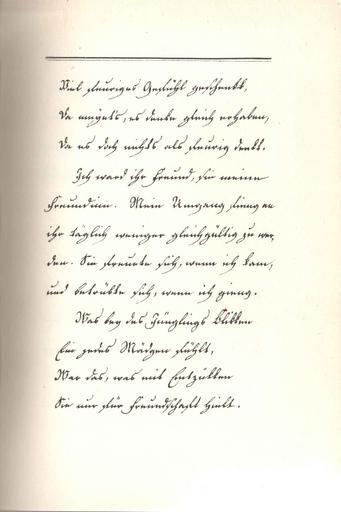 Viel feuriges Gefühl geschenkt,
Da mögt's, es denke gleich erhaben,
Da es doch nichts als feurig denkt.
Ich ward ihr Freund, sie meine
Freundinn. Mein Umgang fieng an
ihr täglich weniger gleichgültig zu wer-
den. Sie freute sich, wenn ich kam,
und betrübte sich, wenn ich gieng.
Was bey des Jünglings Blikken
Ein jedes Mädgen fühlt,
War das, was mit Entzükken
Sie nur für Freundschafft hielt.